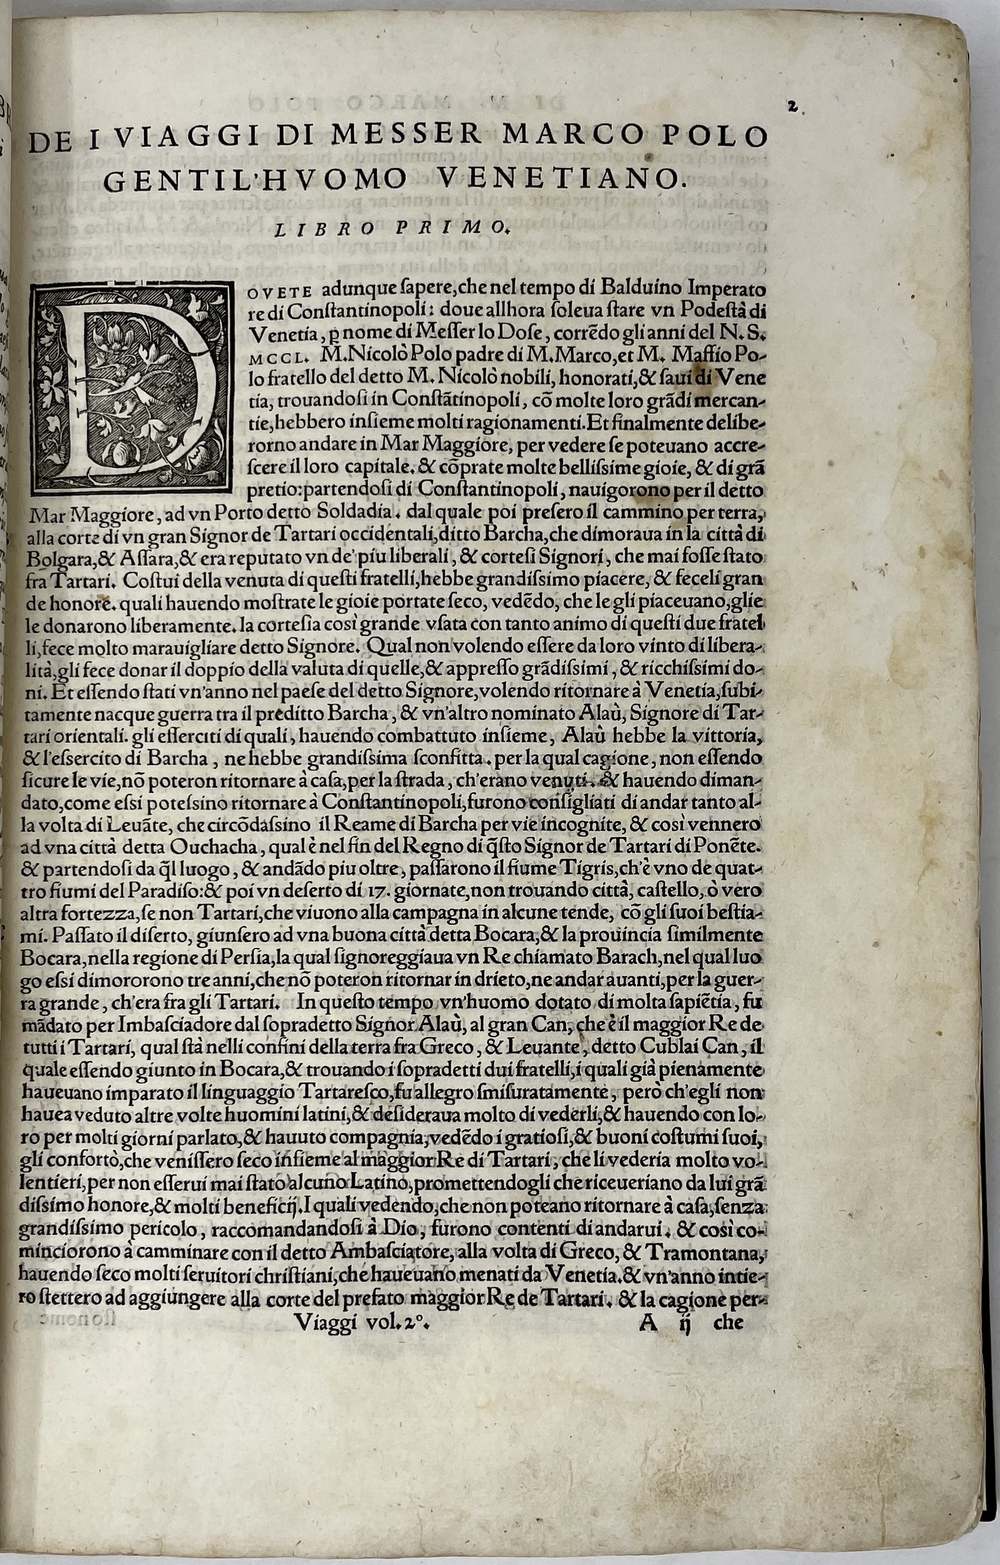 2
DE I VIAGGI DI MESSER MARCO POLO
GENTIL'HVOMO VENETIANO.
LIBRO PRIMO.
DOVETE adunque ſapere,che nel tempo di Balduino Imperato
re di Conſtantinopoli: doue allhora ſoleua ſtare vn Podeſtà di
Venetia, ꝑ nome di Meſſer lo Doſe, corrẽdo gli anni del N. S.
MCCL. M.Nicolò Polo padre di M.Marco,et M. Maffio Po-
lo fratello del detto M. Nicolò nobili, honorati,& ſaui di Vene
tia, trouandoſi in Conſtãtinopoli, cõ molte loro grãdi mercan-
tie,hebbero inſieme molti ragionamenti.Et finalmente delibe-
rorno andare in Mar Maggiore, per vedere ſe poteuano accre-
ſcere il loro capitale. & cõprate molte belliſsime gioie, & di grã
pretio:partendoſi di Conſtantinopoli, nauigorono per il detto
Mar Maggiore, ad vn Porto detto Soldadia. dal quale poi preſero il cammino per terra,
alla corte di vn gran Signor de Tartari occidentali,ditto Barcha,che dimoraua in la città di
Bolgara,& Aſſara,& era reputato vn de' piu liberali, & corteſi Signori, che mai foſſe ſtato
fra Tartari. Coſtui della venuta di queſti fratelli,hebbe grandiſsimo piacere, & feceli gran
de honore. quali hauendo moſtrate le gioie portate ſeco, vedẽdo, che le gli piaceuano,glie
le donarono liberamente. la corteſia così grande vſata con tanto animo di queſti due fratel
li,fece molto marauigliare detto Signore. Qual non volendo eſſere da loro vinto di libera-
lità,gli fece donar il doppio della valuta di quelle,& appreſſo grãdiſsimi, & ricchiſsimi do-
ni. Et eſſendo ſtati vn'anno nel paeſe del detto Signore,volendo ritornare à Venetia,ſubi-
tamente nacque guerra tra il preditto Barcha, & vn'altro nominato Alaù, Signore di Tar-
tari orientali. gli eſſerciti di quali, hauendo combattuto inſieme, Alaù hebbe la vittoria,
& l'eſsercito di Barcha, ne hebbe grandiſsima ſconfitta. per la qual cagione, non eſſendo
ſicure le vie,nõ poteron ritornare à caſa,per la ſtrada, ch'erano venuti. & hauendo diman-
dato,come eſsi poteſsino ritornare à Conſtantinopoli,furono conſigliati di andar tanto al-
la volta di Leuãte, che circõdaſsino il Reame di Barcha per vie incognite, & così vennero
ad vna città detta Ouchacha, qual è nel fin del Regno di q̃ſto Signor de Tartari di Ponẽte.
& partendoſi da q̃l luogo, & andãdo piu oltre, paſſarono il fiume Tigris, ch'è vno de quat-
tro fiumi del Paradiſo:& poi vn deſerto di 17. giornate,non trouando città, caſtello, ò vero
altra fortezza,ſe non Tartari,che viuono alla campagna in alcune tende, cõ gli ſuoi beſtia-
mi. Paſſato il diſerto, giunſero ad vna buona città detta Bocara,& la prouincia ſimilmente
Bocara,nella regione di Perſia,la qual ſignoreggiaua vn Re chiamato Barach,nel qual luo
go eſsi dimororono tre anni,che nõ poteron ritornar in drieto,ne andar auanti,per la guer-
ra grande, ch'era fra gli Tartari. In queſto tempo vn'huomo dotato di molta ſapiẽtia, fu
mãdato per Imbaſciadore dal ſopradetto Signor Alaù, al gran Can, che è il maggior Re de
tutti i Tartari, qual ſtà nelli confini della terra fra Greco, & Leuante, detto Cublai Can, il
quale eſſendo giunto in Bocara,& trouando i ſopradetti dui fratelli,i quali già pienamente
haueuano imparato il linguaggio Tartareſco,fu allegro ſmiſuratamente, però ch'egli non
hauea veduto altre volte huomini latini,& deſideraua molto di vederli,& hauendo con lo-
ro per molti giorni parlato,& hauuto compagnia,vedẽdo i gratioſi,& buoni coſtumi ſuoi,
gli confortò,che veniſſero ſeco inſieme al maggior Re di Tartari, che li vederia molto vo-
lentieri,per non eſſerui mai ſtato alcuno Latino,promettendogli che riceueriano da lui grã
diſsimo honore,& molti beneficij.I quali vedendo,che non poteano ritornare à caſa,ſenza
grandiſsimo pericolo, raccomandandoſi à Dio, furono contenti di andarui. & così co-
minciorono à camminare con il detto Ambaſciatore, alla volta di Greco, & Tramontana,
hauendo ſeco molti ſeruitori chriſtiani,che haueuano menati da Venetia.& vn'anno intie-
ro ſtettero ad aggiungere alla corte del prefato maggior Re de Tartari. & la cagione per-
Viaggi vol.2°. A ij che